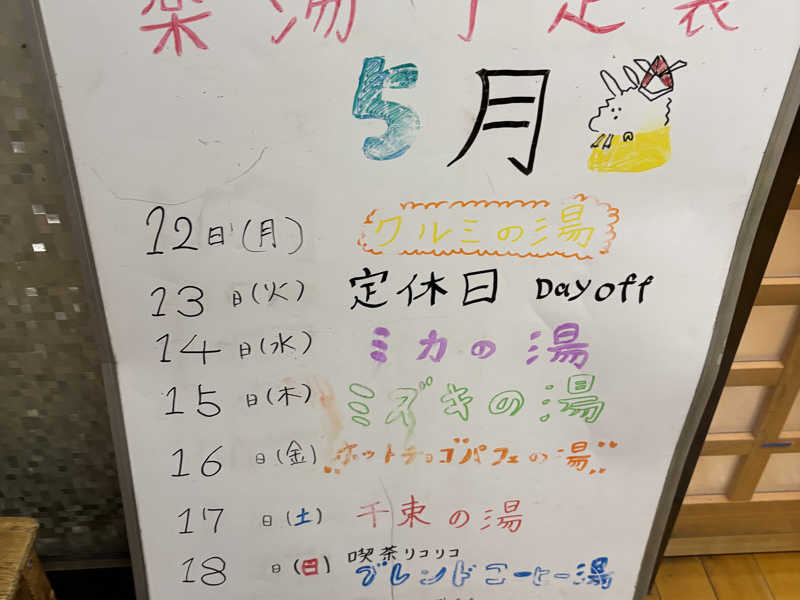 薬湯予定表
5月
12日(月) クルミの湯
13日(火) 定休日 Day off
14日(水) ミカの湯
15日(木) ミズキの湯
16日(金) ホットチョコパフェの湯
17日(土) 千束の湯
18日(日) 喫茶リコリコ
ブレンドコーヒー湯